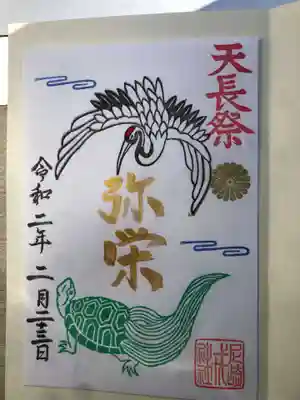 天長祭
弥栄
令和二年二月二十三日